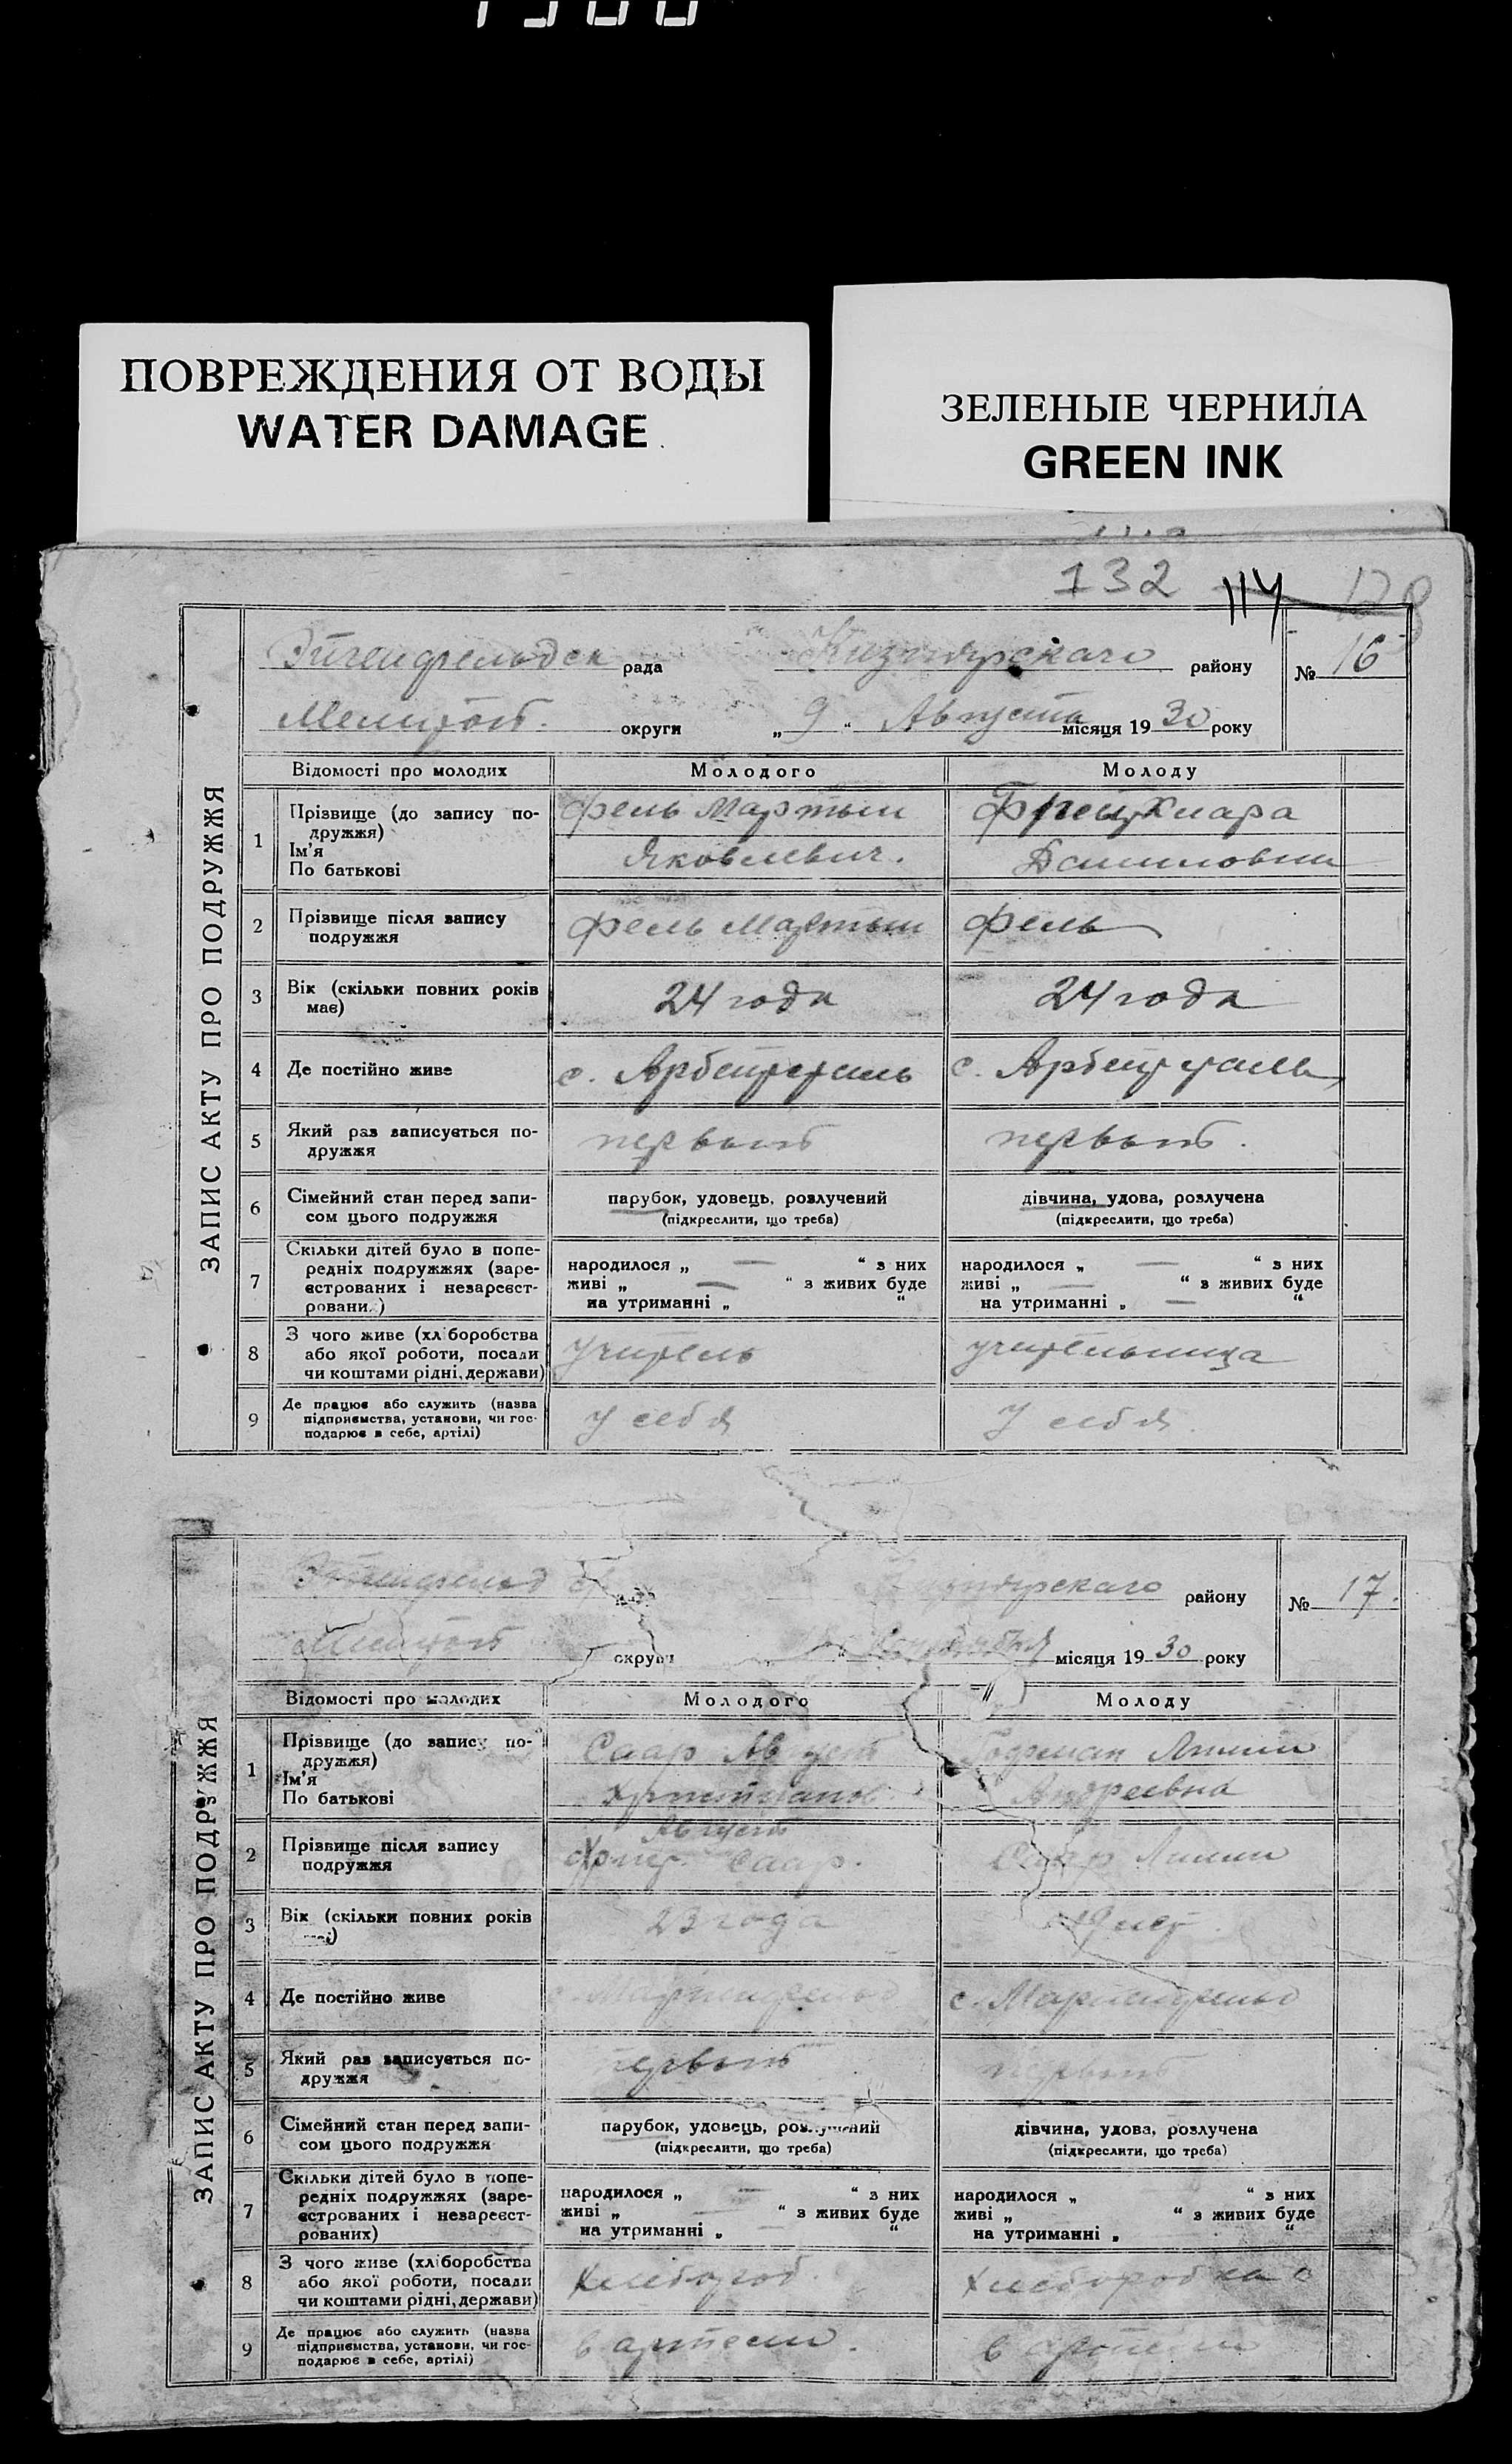 ПОВРЕЖДЕНИЯ ОТ ВОДЫ
WATER DAMAGE
ЗЕЛЕНЫЕ ЧЕРНИЛА
GREEN INK
132 114 128
ЗАПИС АКТУ ПРО ПОДРУЖЖЯ
рада района району № 16
Мелитоп. округи „ 9 “ Августа місяця 19 30 року
Відомості про молодих Молодого Молоду
1 Прізвище (до запису по-
дружжя)
Ім'я
По батькові
Фель Мартын
Яковлевич.
Клара
2 Прізвище після запису
подружжя
Фель Мартын Фель
3 Вік (скільки повних років
має)
24 года 24 года
4 Де постійно живе с. Арбейтсталь с. Арбейтсталь
5 Який раз записується по-
дружжя
первый первый.
6 Сімейний стан перед запи-
сом цього подружжя
парубок, удовець, розлучений
(підкреслити, що треба)
дівчина, удова, розлучена
(підкреслити, що треба)
7 Скільки дітей було в попе-
редніх подружжях (заре-
єстрованих і незареєст-
ровани )
народилося „ — “ з них
живі „ — “ з живих буде
на утриманні „ “
народилося „ — “ з них
живі „ — “ з живих буде
на утриманні „ — “
8 З чого живе (хліборобства
або якої роботи, посади
чи коштами рідні, держави)
учитель учительница
9 Де працює або служить (назва
підприємства, установи, чи гос-
подарює в себе, артілі)
у себя у себя.
ЗАПИС АКТУ ПРО ПОДРУЖЖЯ
району № 17.
Мелитоп округи “ місяця 19 30 року
Відомості про молодих Молодого Молоду
1 Прізвище (до запису по-
дружжя)
Ім'я
По батькові
Саар Август
Християнов.
Гофман
Андреевна
2 Прізвище після запису
подружжя
Август
Саар. Саар
3 Вік (скільки повних років
має)
23 года 19 лет.
4 Де постійно живе с. Мариенфельд с. Мариенфельд
5 Який раз записується по-
дружжя
первый первый
6 Сімейний стан перед запи-
сом цього подружжя
парубок, удовець, розлучений
(підкреслити, що треба)
дівчина, удова, розлучена
(підкреслити, що треба)
7 Скільки дітей було в попе-
редніх подружжях (заре-
єстрованих і незареєст-
рованих)
народилося „ — “ з них
живі „ — “ з живих буде
на утриманні „ — “
народилося „ “ з них
живі „ “ з живих буде
на утриманні „ “
8 З чого живе (хліборобства
або якої роботи, посади
чи коштами рідні, держави)
хлебороб. хлеборобка
9 Де працює або служить (назва
підприємства, установи, чи гос-
подарює в себе, артілі)
в артели. в артели